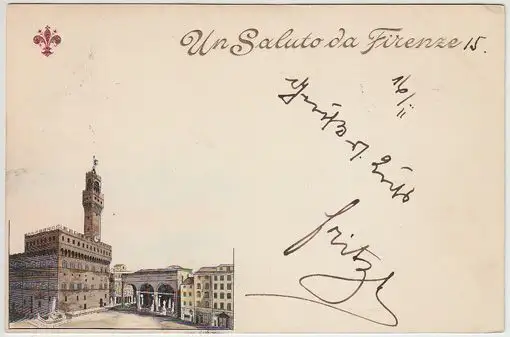 Un Saluto da Firenze 15.
16/II
Gruß u. Kuß
Fritz